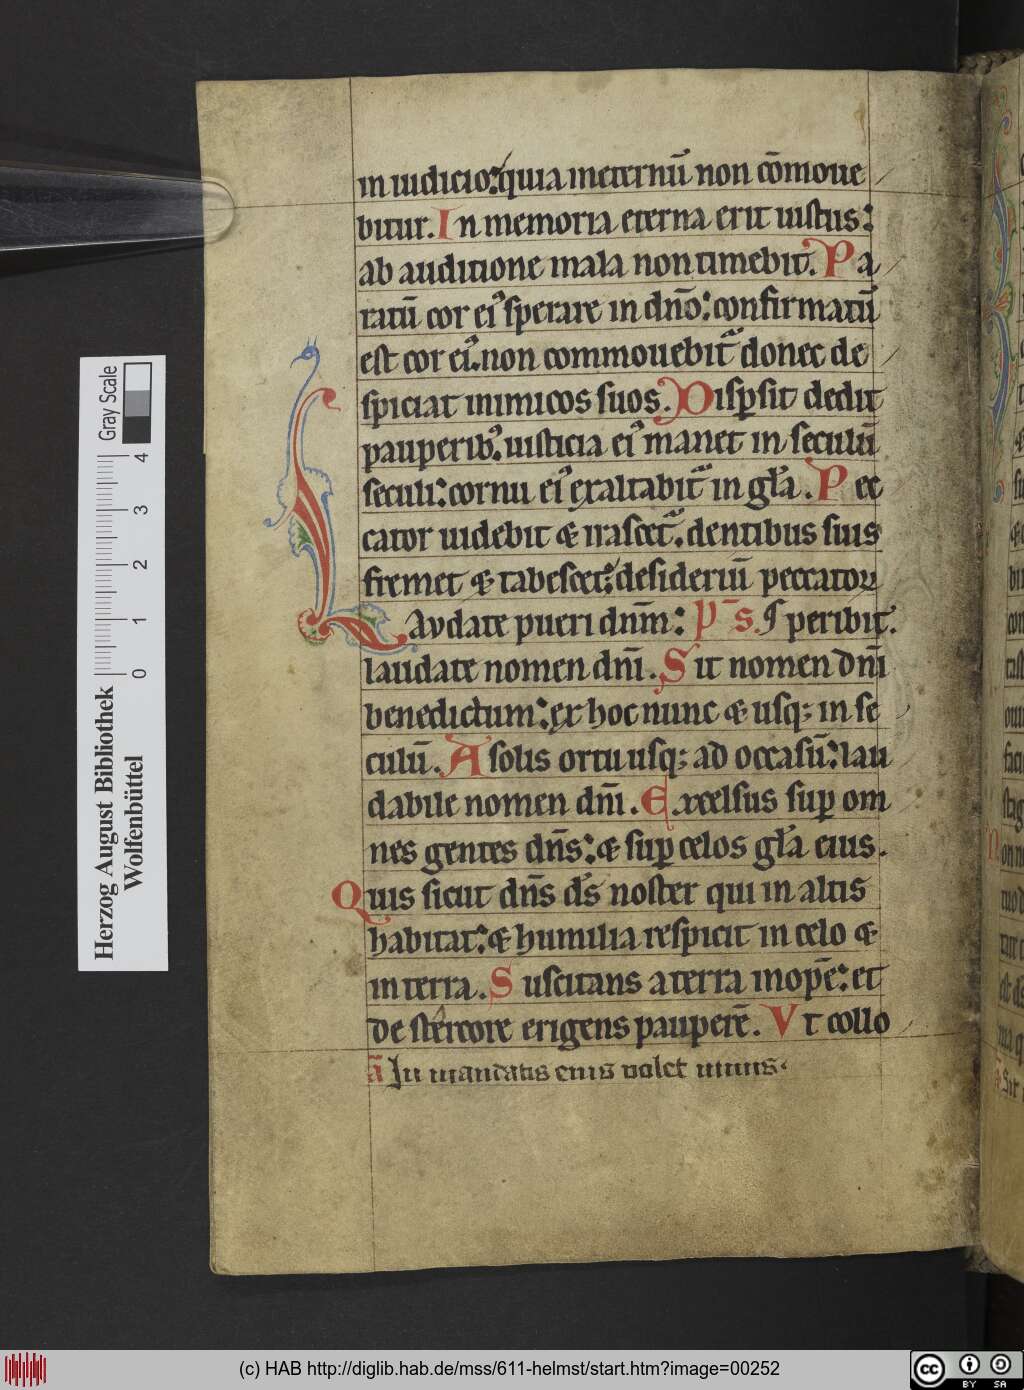 in iudicio: quia ineternū non cōmoue
bitur. In memoria eterna erit iustus:
ab auditione mala non timebit. Pa
ratū cor ei' sperare in dño: confirmatū
est cor ei'. non commouebit̄ donec de
spiciat inimicos suos. Dispsit dedit
pauperib'. iusticia ei' manet in seculū
seculi: cornu ei' exaltabit̄ in gła. Pec
cator uidebit & irascet̄. dentibus suis
fremet & tabescet: desideriū peccatoꝝ
peribit.
Laudate pueri dnm̄: Ps.
laudate nomen dnī. Sit nomen dnī
benedictum: ex hoc nunc & usq; in se
culū. A solis ortu usq; ad occasū: lau
dabile nomen dnī. Excelsus sup om
nes gentes dñs: & sup celos gła eius.
Quis sicut dñs ds̄ noster qui in altis
habitat: & humilia respicit in celo &
in terra. Suscitans a terra inopē: et
de stercore erigens pauperē. Vt collo
ā In mandatis eius uolet nimis.
Herzog August Bibliothek
Wolfenbüttel
0 1 2 3 4
Gray Scale
(c) HAB http://diglib.hab.de/mss/611-helmst/start.htm?image=00252
cc BY SA